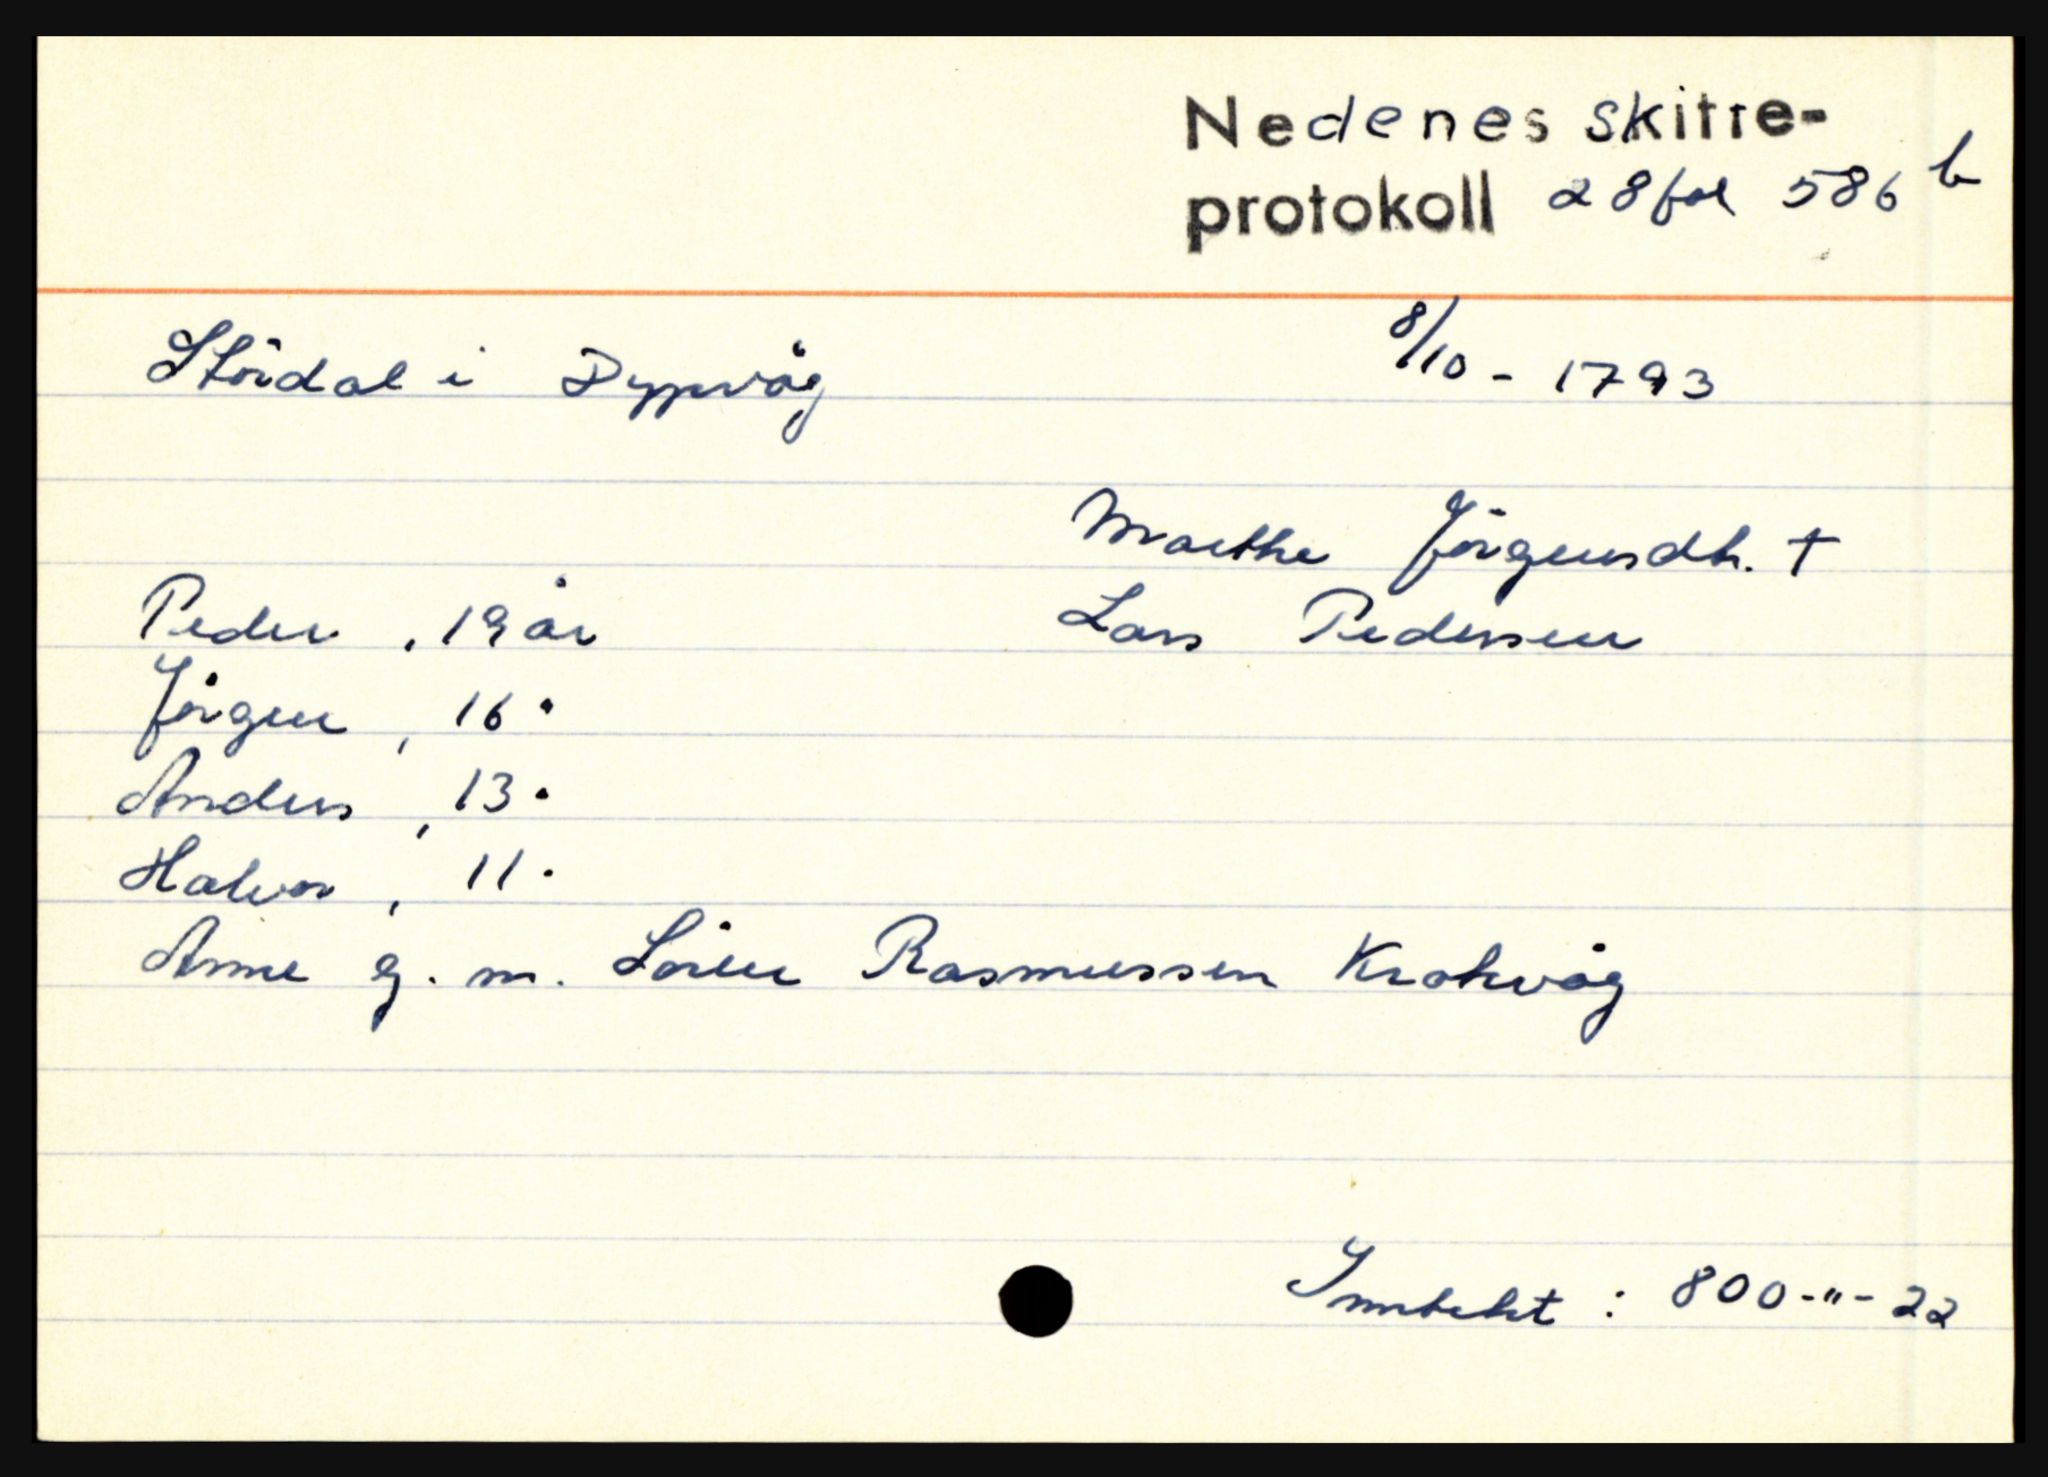 Nedenes skifte-
protokoll 28 fol 586 b
8/10 - 1793
Stördal i Dypvåg
Marthe Jörgensdtr. †
Peder, 19 år Lars Pedersen
Jörgen, 16 "
Anders, 13 "
Halvor, 11 "
Anne g. m. Sören Rasmussen Krokvåg
Inntekt : 800-"-22